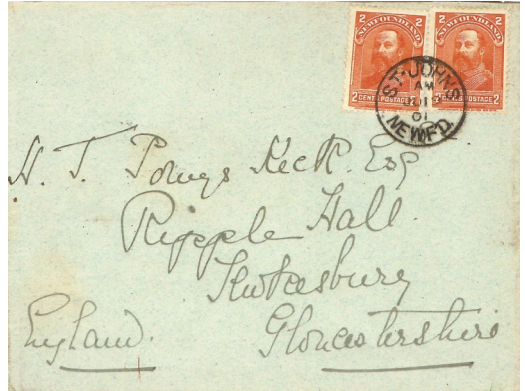 2 NEWFOUNDLAND 2
2 CENTS POSTAGE 2
2 NEWFOUNDLAND 2
2 CENTS POSTAGE 2
ST. JOHN'S
AM
01
NEWF'D.
H. T. Powys Keck. Esq
Ripple Hall.
Tewkesbury
Gloucestershire
England.